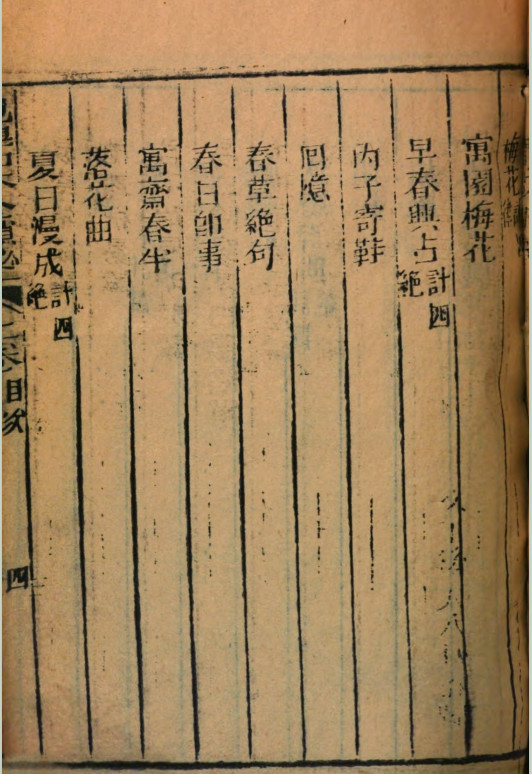 梅花絕
寓園梅花
早春興占 計四絕
內子寄鞋
回憶
春草絕句
春日即事
寓齋春半
落花曲
夏日漫成 計四絕
目次 四